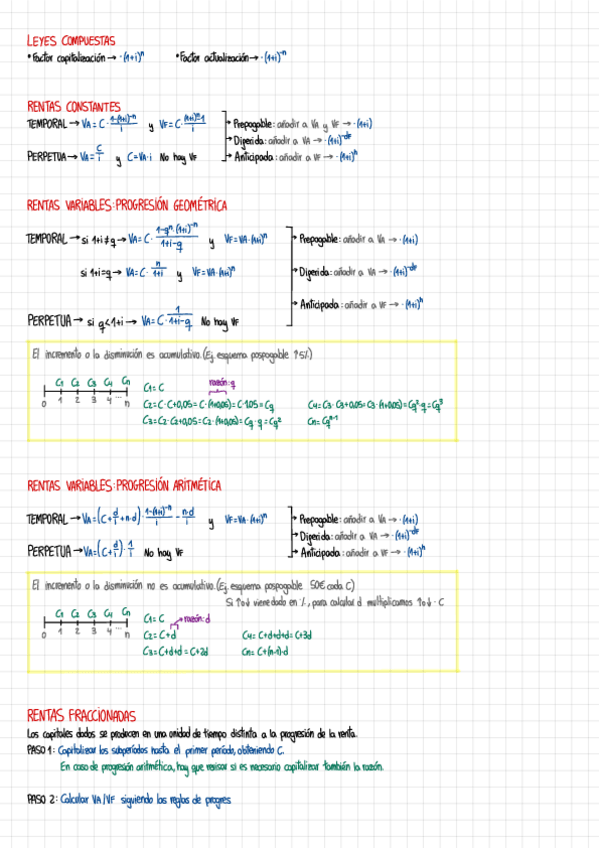 LEYES COMPUESTAS
• Factor capitalización → ·(1+i)^n • Factor actualización → ·(1+i)^-n
RENTAS CONSTANTES
TEMPORAL → VA = C · (1-(1+i)^-n)/i y VF = C · ((1+i)^n-1)/i
→ Prepagable: añadir a VA y VF → ·(1+i)
→ Diferida: añadir a VA → ·(1+i)^-df
PERPETUA → VA = C/i y C = VA·i No hay VF
→ Anticipada: añadir a VF → ·(1+i)^h
RENTAS VARIABLES: PROGRESIÓN GEOMÉTRICA
TEMPORAL → si 1+i≠q → VA = C · (1-q^n·(1+i)^-n)/(1+i-q) y VF = VA·(1+i)^n
→ Prepagable: añadir a VA → ·(1+i)
si 1+i=q → VA = C · n/(1+i) y VF = VA·(1+i)^n
→ Diferida: añadir a VA → ·(1+i)^-df
→ Anticipada: añadir a VF → ·(1+i)^h
PERPETUA → si q<1+i → VA = C · 1/(1+i-q) No hay VF
El incremento o la disminución es acumulativo. (Ej. esquema pospagable ↑5%)
C1 C2 C3 C4 Cn
0 1 2 3 4 ... n
C1 = C
razón: q
C2 = C · C+0,05 = C · (1+0,05) = C · 1,05 = Cq
C4 = C3 · C3+0,05 = C3 · (1+0,05) = Cq²·q = Cq³
C3 = C2 · C2+0,05 = C2 · (1+0,05) = Cq · q = Cq²
Cn = Cq^n-1
RENTAS VARIABLES: PROGRESIÓN ARITMÉTICA
TEMPORAL → VA = (C + d/i + n·d) · (1-(1+i)^-n)/i - n·d/i y VF = VA·(1+i)^n
→ Prepagable: añadir a VA → ·(1+i)
→ Diferida: añadir a VA → ·(1+i)^-df
PERPETUA → VA = (C + d/i) · 1/i No hay VF
→ Anticipada: añadir a VF → ·(1+i)^h
El incremento o la disminución no es acumulativo. (Ej. esquema pospagable 50€ cada C)
Si ↑o↓ viene dado en %, para calcular d multiplicamos ↑o↓ · C
C1 C2 C3 C4 Cn
0 1 2 3 4 ... n
C1 = C
razón: d
C2 = C+d
C4 = C+d+d+d = C+3d
C3 = C+d+d = C+2d
Cn = C+(n-1)·d
RENTAS FRACCIONADAS
Los capitales dados se producen en una unidad de tiempo distinta a la progresión de la renta.
PASO 1: Capitalizar los subperíodos hasta el primer período, obteniendo C.
En caso de progresión aritmética, hay que revisar si es necesario capitalizar también la razón.
PASO 2: Calcular VA/VF siguiendo las reglas de progres